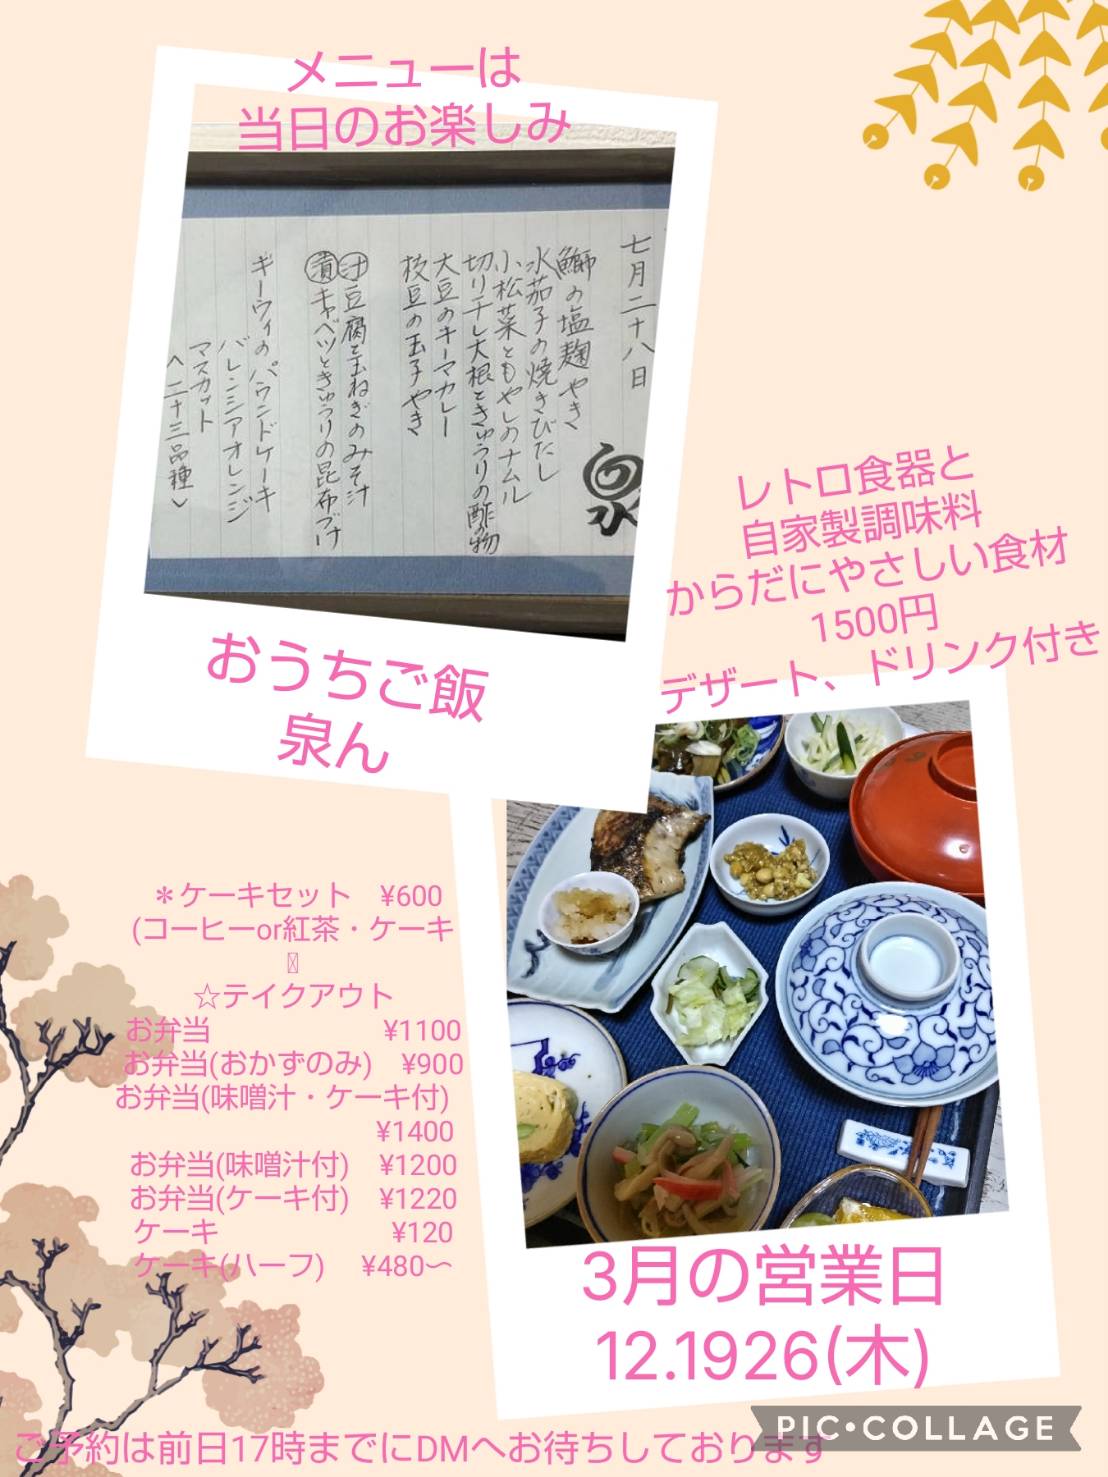 メニューは
当日のお楽しみ
七月二十八日
鰤の塩麹やき
水茄子の焼きびたし
小松菜ともやしのナムル
切り干し大根ときゅうりの酢の物
大豆のキーマカレー
枝豆の玉子やき
汁 豆腐と玉ねぎのみそ汁
漬 キャベツときゅうりの昆布づけ
キーウィのパウンドケーキ
バレンシアオレンジ
マスカット
(二十三品種)
泉
おうちご飯
泉ん
レトロ食器と
自家製調味料
からだにやさしい食材
1500円
デザート、ドリンク付き
＊ケーキセット　¥600
(コーヒーor紅茶・ケーキ
☆テイクアウト
お弁当　¥1100
お弁当(おかずのみ)　¥900
お弁当(味噌汁・ケーキ付)
¥1400
お弁当(味噌汁付)　¥1200
お弁当(ケーキ付)　¥1220
ケーキ　¥120
ケーキ(ハーフ)　¥480〜
3月の営業日
12.1926(木)
ご予約は前日17時までにDMへお待ちしております
PIC•COLLAGE